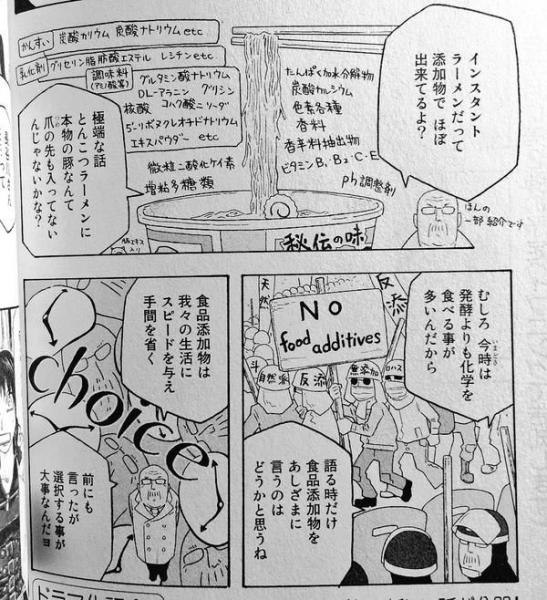 インスタント
ラーメンだって
添加物で ほぼ
出来てるよ?
かんすい 炭酸カリウム 炭酸ナトリウム etc
乳化剤 グリセリン脂肪酸エステル レシチン etc
調味料
(アミノ酸等)
グルタミン酸ナトリウム
DL-アラニン グリシン
核酸 コハク酸ニナトリウム
5'-リボヌクレオチドナトリウム
エキスパウダー etc
微粒二酸化ケイ素
増粘多糖類
たんぱく加水分解物
炭酸カルシウム
色素各種
香料
香辛料抽出物
ビタミンB₁・B₂・C・E
ph調整剤
ほんの
一部 紹介です
極端な話
とんこつラーメンに
本物の豚なんて
爪の先も入ってない
んじゃないかな?
秘伝の味
豚エキス
入り
むしろ 今時は
いまどき
発酵よりも化学を
食べる事が
多いんだから
天然
反添
No
food additives
自然派
反添
無添加
ロハス
語る時だけ
食品添加物を
あしざまに
言うのは
どうかと思うね
食品添加物は
我々の生活に
スピードを与え
手間を省く
choice
前にも
言ったが
選択する事が
大事なんだヨ